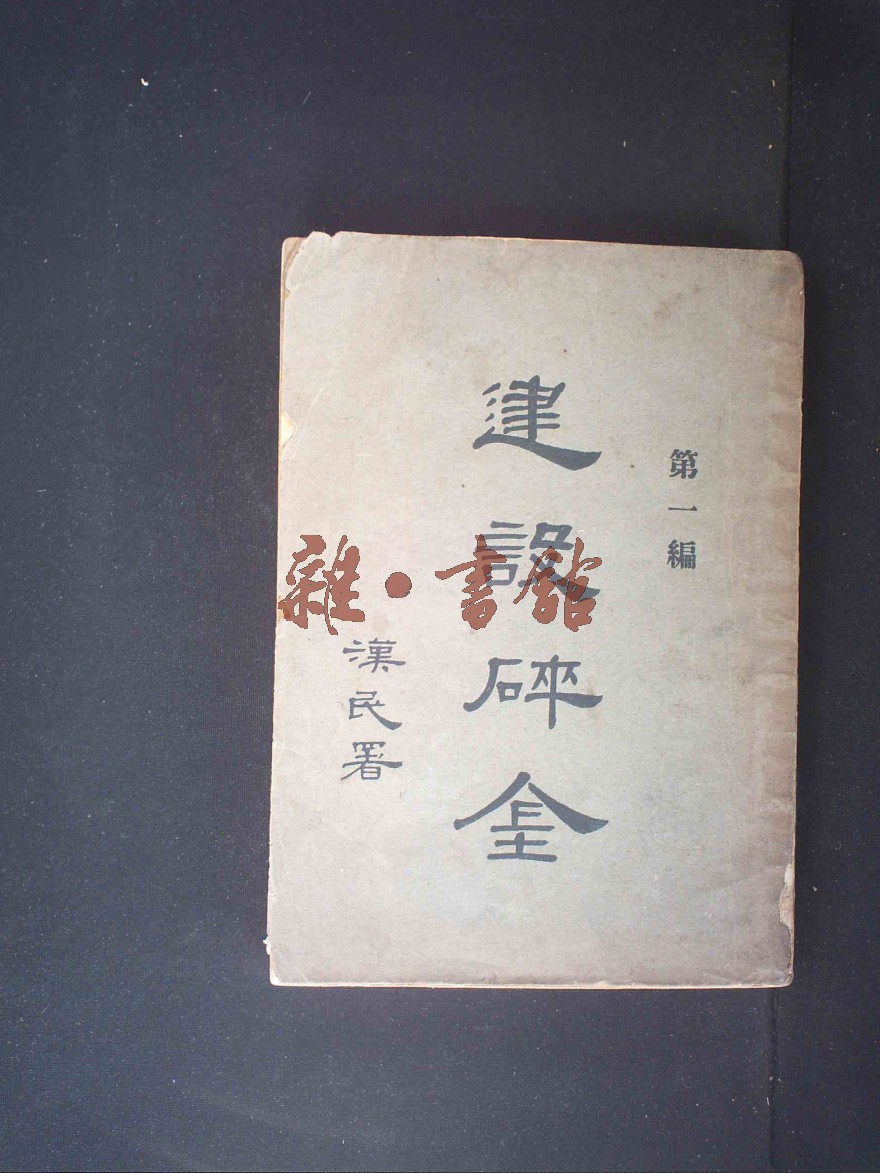 第一編
建設碎金
漢民署
雜·書館